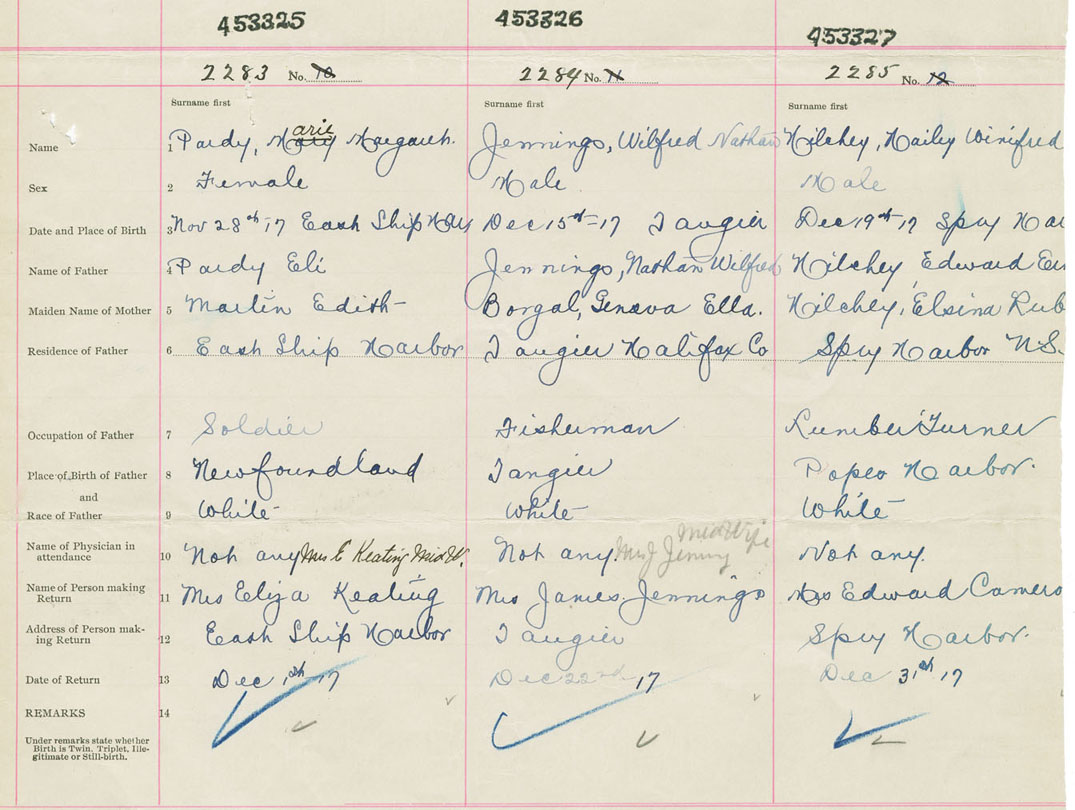 453325 453326 453327
2283 No. 10 2284 No. 11 2285 No. 12
Surname first Surname first Surname first
Name 1 Pardy, Mary arie Margaret. Jennings, Wilfred Nathan Hilchey, Hailey Winifred
Sex 2 Female Male Male
Date and Place of Birth 3 Nov 28th-17 East Ship Dec 15th-17 Tangier Dec 19th-17 Spry Har
Name of Father 4 Pardy Eli Jennings, Nathan Wilfred Hilchey Edward
Maiden Name of Mother 5 Martin Edith Borgal, Geneva Ella. Hilchey, Elsina Rub
Residence of Father 6 East Ship Harbor Tangier Halifax Co Spry Harbor N.S.
Occupation of Father 7 Soldier Fisherman Lumber Turner
Place of Birth of Father 8 Newfoundland Tangier Popes Harbor.
and
Race of Father 9 White White White
Name of Physician in
attendance 10 Not any Mrs E Keating MidW. Not any Mrs J Jenning MidWife Not any.
Name of Person making
Return 11 Mrs Eliza Keating Mrs James Jennings Mrs Edward Camero
Address of Person mak-
ing Return 12 East Ship Harbor Tangier Spry Harbor.
Date of Return 13 Dec 1th 17 Dec 22nd-17 Dec 31th 17
REMARKS 14
Under remarks state whether
Birth is Twin, Triplet, Ille-
gitimate or Still-birth.